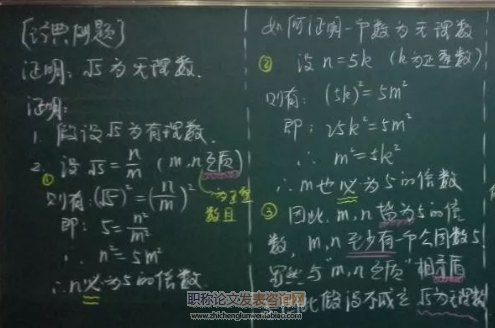 [经典问题]
证明: √5为无理数.
证明:
1. 假设√5为有理数.
2. 设√5=n/m (m,n互质)
① 为正整数且
则有: (√5)²=(n/m)²
即: 5=n²/m²
∴ n²=5m²
∴n必为5的倍数
如何证明一个数为无理数
② 设n=5k (k为正整数)
则有: (5k)²=5m²
即: 25k²=5m²
∴ m²=5k²
∴m也必为5的倍数
③ 因此 m,n皆为5的倍
数, m,n至少有一个公因数5.
与"m,n互质"相矛盾
因此假设不成立 √5为无理数
职称论文发表咨询网
www.zhichenglunwenfabiao.com